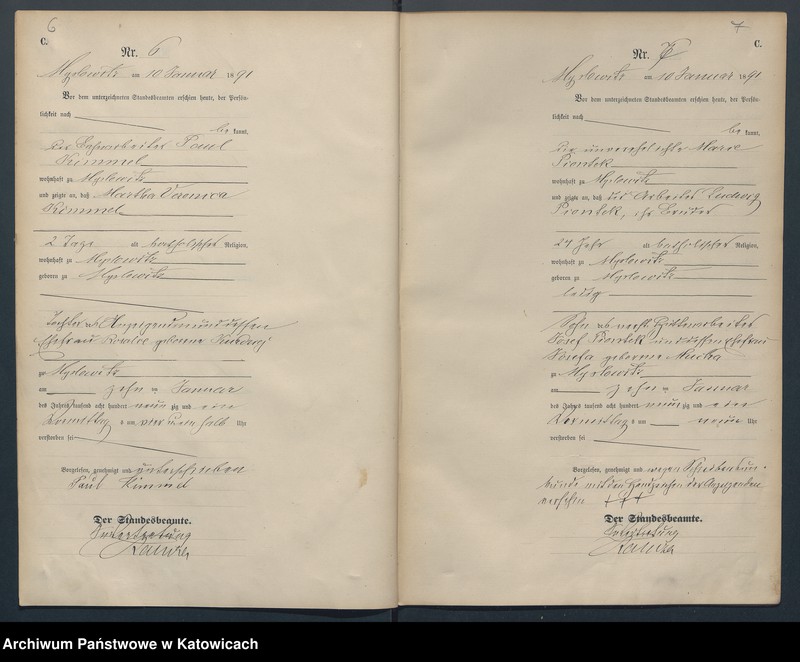 6
C.
Nr. 6
Myslowitz am 10 Januar 1891
Vor dem unterzeichneten Standesbeamten erschien heute, der Persön-
lichkeit nach
be kannt,
der Paul
Kimmel
wohnhaft zu Myslowitz
und zeigte an, daß Martha
Kimmel
2 Tage alt katholischer Religion,
wohnhaft zu Myslowitz
geboren zu Myslowitz
Tochter des Anzeigenden und dessen
Ehefrau geborene
zu Myslowitz
am zehn ten Januar
des Jahres tausend acht hundert neun zig und ein
Vormittag s um vier ein halb Uhr
verstorben sei
Vorgelesen, genehmigt und unterschrieben
Paul Kimmel
Der Standesbeamte.
In Vertretung
7
C.
Nr. 7
Myslowitz am 10 Januar 1891
Vor dem unterzeichneten Standesbeamten erschien heute, der Persön-
lichkeit nach
be kannt,
die unverehelichte Marie
Piontek
wohnhaft zu Myslowitz
und zeigte an, daß der Arbeiter Ludwig
Piontek, ihr Bruder
24 Jahr alt katholischer Religion,
wohnhaft zu Myslowitz
geboren zu Myslowitz
ledig
Sohn des Hüttenarbeiter
Josef Piontek und dessen Ehefrau
Josefa geborene Mucha
zu Myslowitz
am zehn ten Januar
des Jahres tausend acht hundert neun zig und ein
Vormittag s um neun Uhr
verstorben sei
Vorgelesen, genehmigt und wegen Schreibensun-
kunde mit den Handzeichen der Anzeigenden
versehen +++
Der Standesbeamte.
In Vertretung
Archiwum Państwowe w Katowicach